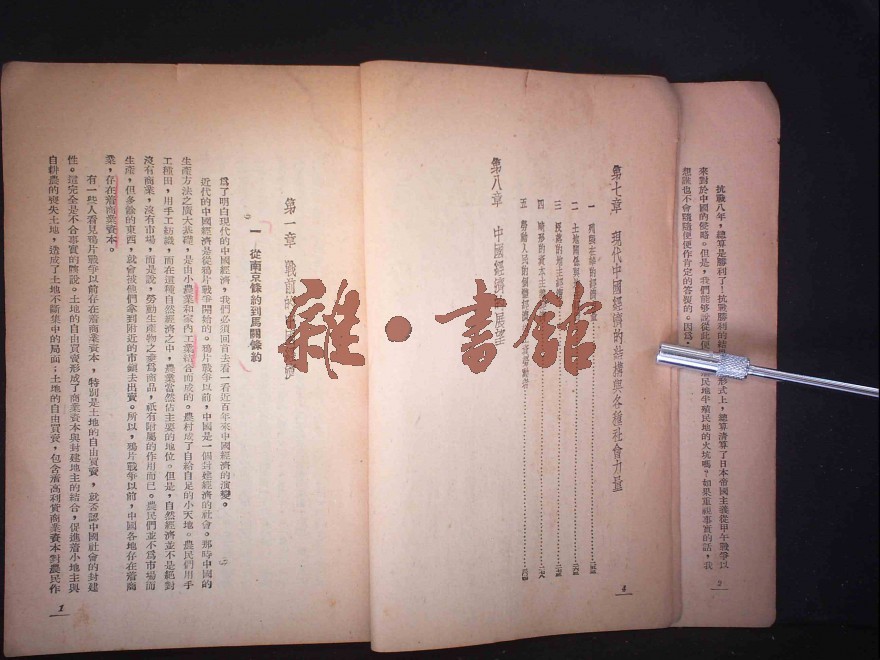 抗戰八年，總算是勝利了！抗戰勝利的結果，形式上，總算清算了日本帝國主義從甲午戰爭以
來對於中國的侵略。但是，我們能够說從此便民地半殖民地的火坑嗎？如果重視事實的話，我
想誰也不會隨隨便便作肯定的答復的。因爲，
2
第七章 現代中國經濟的結構與各種社會力量
一 列强在華的經濟
二 土地關係與
三
四 畸形的資本主義
五 勞動人民的個體經濟
第八章 中國經濟的展望
4
第一章 戰前的中國經濟
一 從南京條約到馬關條約
爲了明白現代的中國經濟，我們必須回首去看一看近百年來中國經濟的演變。
近代的中國經濟是從鴉片戰爭開始的。鴉片戰爭以前，中國是一個封建經濟的社會。那時中國的
生產方法之廣大基礎，是由小農業和家內工業結合而成的。農村成了自給自足的小天地。農民們用手
工種田，用手工紡織，而在這種自然經濟之中，農業當然佔主要的地位。但是，自然經濟並不是絕對
沒有商業，沒有市場，而是說，勞動生產物之委爲商品，祇有附屬的作用而已。農民們並不爲市場而
生產，但多餘的東西，就會被他們拿到附近的市鎮去出賣。所以，鴉片戰爭以前，中國各地存在着商
業，存在着商業資本。
有一些人看見鴉片戰爭以前存在着商業資本，特別是土地的自由買賣，就否認中國社會的封建
性。這完全是不合事實的瞎說。土地的自由買賣形成了商業資本與封建地主的結合，促進着小地主與
自耕農的喪失土地，造成了土地不斷集中的局面；土地的自由買賣，包含着高利貸商業資本對農民作
1
雜·書館